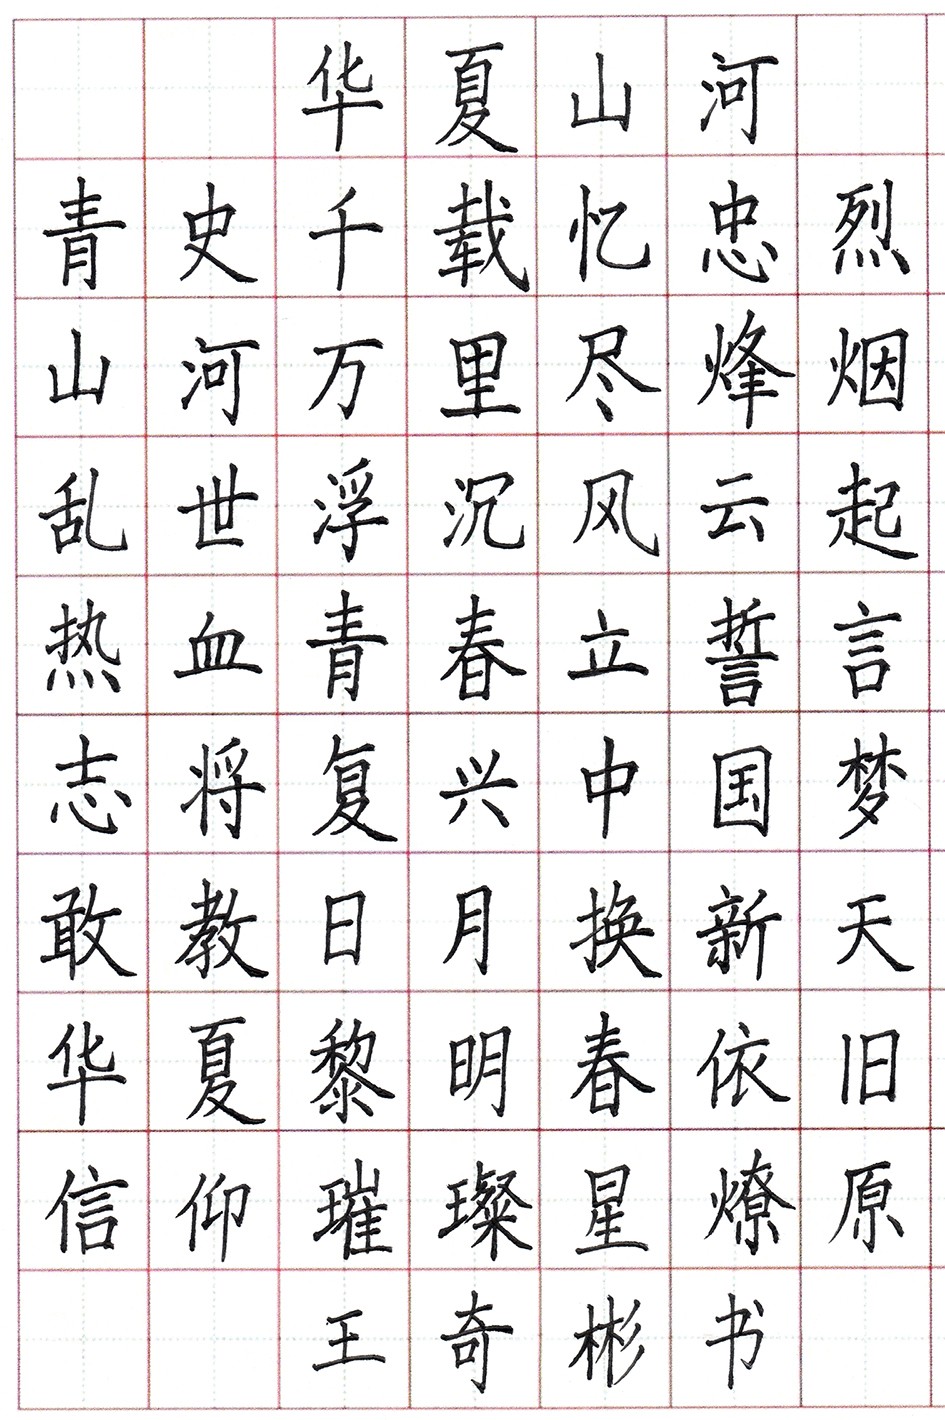 华夏山河
青史千载忆忠烈
山河万里尽烽烟
乱世浮沉风云起
热血青春立誓言
志将复兴中国梦
敢教日月换新天
华夏黎明春依旧
信仰璀璨星燎原
王奇彬书